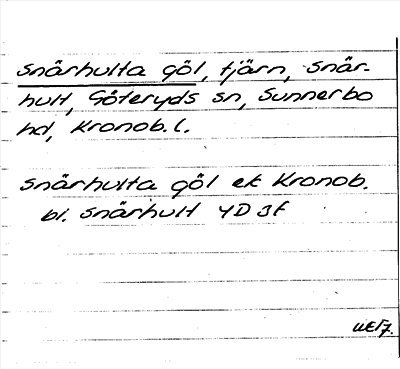 Snärhulta göl, tjärn, Snär-
hult, Göteryds sn, Sunnerbo
hd, Kronob. l.
Snärhulta göl ek Kronob.
bl. Snärhult 4D 3f